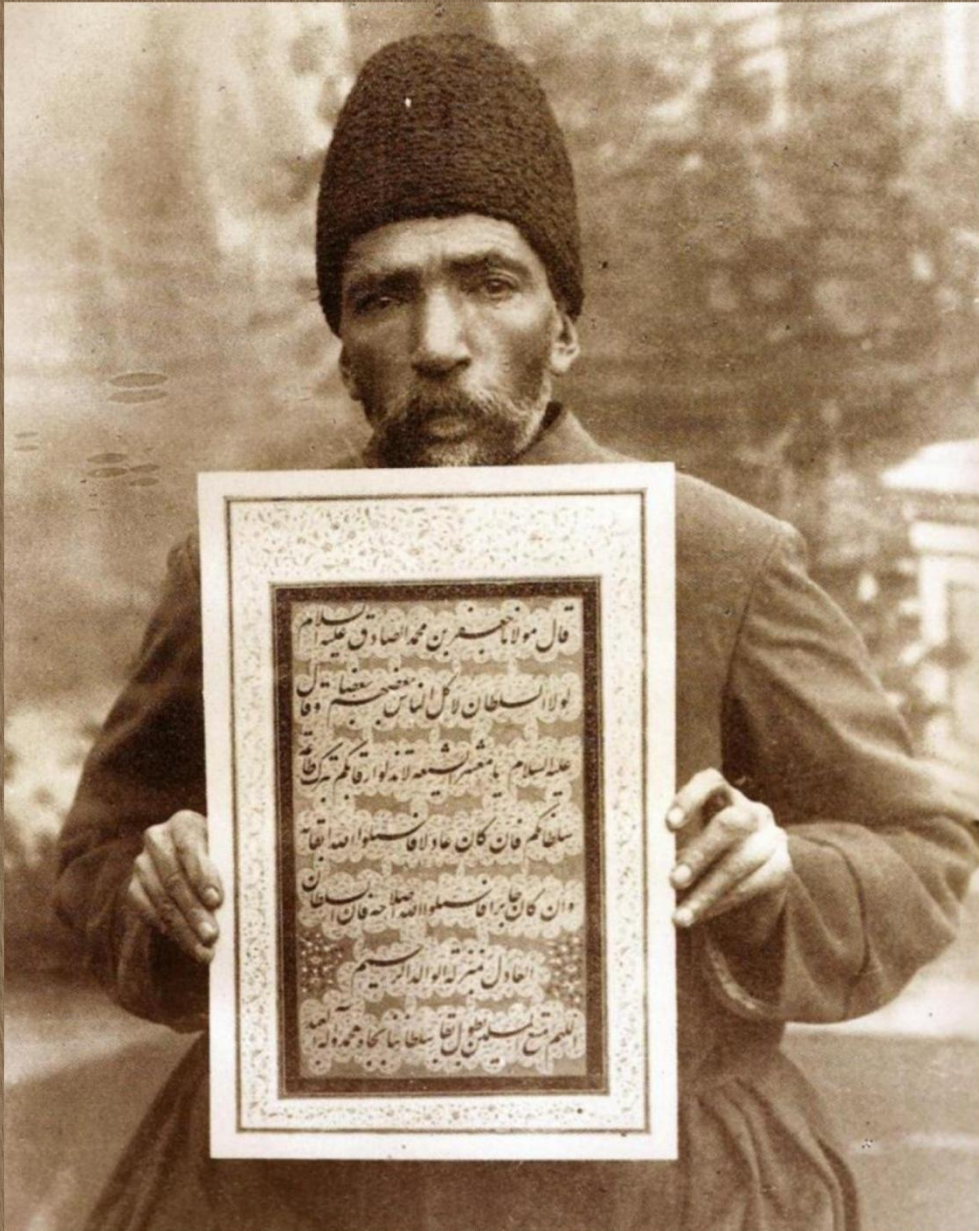 قال مولانا جعفر بن محمد الصادق علیه السلام
لولا السلطان لاکل الناس بعضهم بعضا وقال
علیه السلام یا معشر الشیعه لا تذلوا رقابکم بترک طاعة
سلطانکم فان کان عادلا فاسئلوا الله ابقائه
وان کان جابرا فاسئلوا الله اصلاحه فان السلطان
العادل بمنزلة الوالد الرحیم
اللهم متع المسلمین بطول بقا سلطاننا بجاه محمد وآله